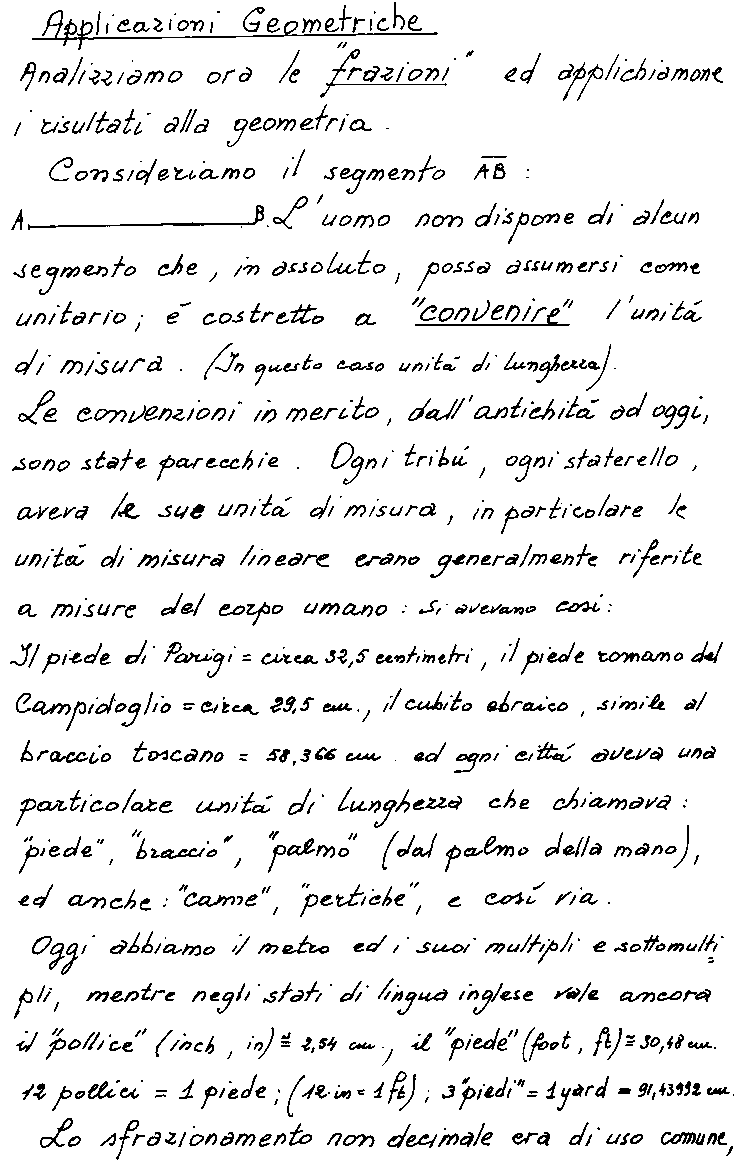 Applicazioni Geometriche
Analizziamo ora le "frazioni" ed applichiamone
i risultati alla geometria.
Consideriamo il segmento A̅B̅ :
A B. L'uomo non dispone di alcun
segmento che, in assoluto, possa assumersi come
unitario; é costretto a "convenire" l'unitá
di misura. (In questo caso unitá di lunghezza).
Le convenzioni in merito, dall'antichitá ad oggi,
sono state parecchie. Ogni tribú, ogni staterello,
aveva le sue unitá di misura, in particolare le
unitá di misura lineare erano generalmente riferite
a misure del corpo umano: si avevano cosí:
Il piede di Parigi = circa 32,5 centimetri, il piede romano del
Campidoglio = circa 29,5 cm., il cubito ebraico, simile al
braccio toscano = 58,366 cm ed ogni cittá aveva una
particolare unitá di lunghezza che chiamava:
"piede", "braccio", "palmo" (dal palmo della mano),
ed anche: "canne", "pertiche", e cosí via.
Oggi abbiamo il metro ed i suoi multipli e sottomulti=
pli, mentre negli stati di lingua inglese vale ancora
il "pollice" (inch, in) ≅ 2,54 cm., il "piede" (foot, ft) ≅ 30,48 cm.
12 pollici = 1 piede; (12 in = 1 ft); 3 "piedi" = 1 yard = 91,43992 cm.
Lo sfrazionamento non decimale era di uso comune,